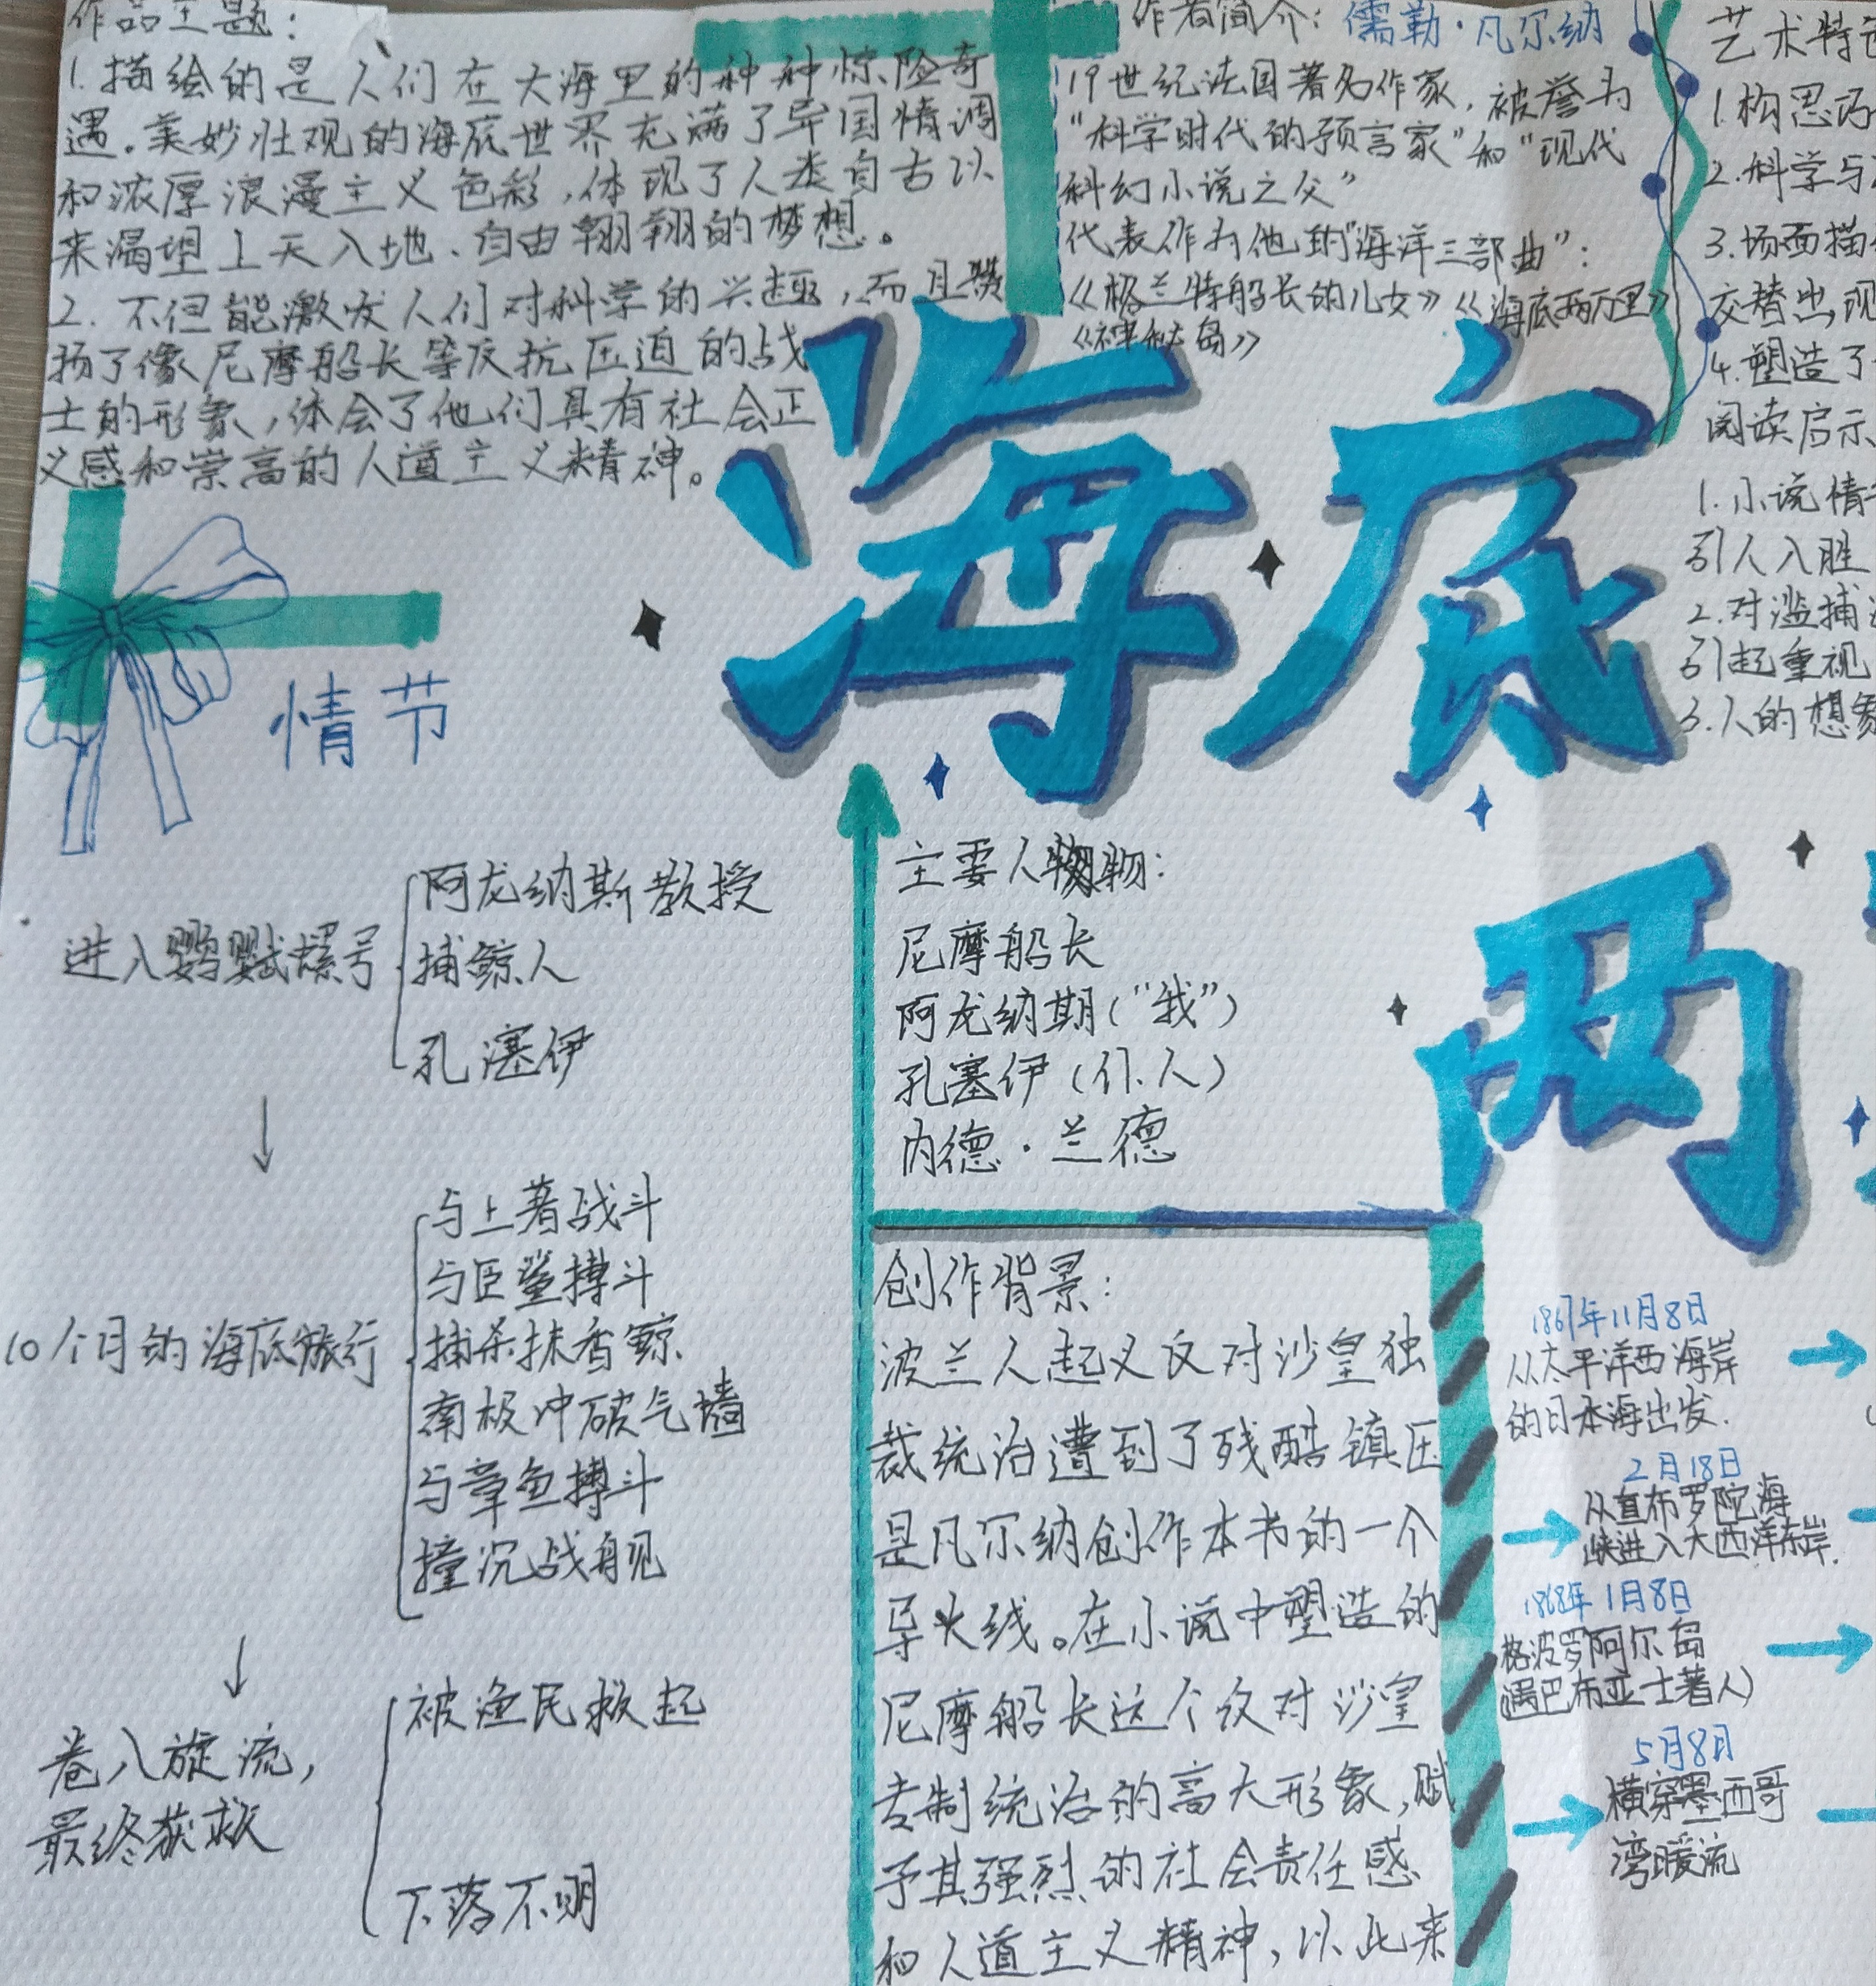 作品主题：
1.描绘的是人们在大海里的种种惊险奇
遇。美妙壮观的海底世界充满了异国情调
和浓厚浪漫主义色彩，体现了人类自古以
来渴望上天入地、自由翱翔的梦想。
2.不但能激发人们对科学的兴趣，而且赞
扬了像尼摩船长等反抗压迫的战
士的形象，体会了他们具有社会正
义感和崇高的人道主义精神。
作者简介：儒勒·凡尔纳
19世纪法国著名作家，被誉为
“科学时代的预言家”和“现代
科幻小说之父”
代表作为他的“海洋三部曲”：
《格兰特船长的儿女》《海底两万里》
《神秘岛》
艺术特
1.构思巧
2.科学与
3.场面描
交替出现
4.塑造了
阅读启示
1.小说情
引人入胜
2.对滥捕
引起重视
3.人的想象
海底
两
情节
进入鹦鹉螺号
阿龙纳斯教授
捕鲸人
孔塞伊
↓
10个月的海底旅行
与土著战斗
与巨鲨搏斗
捕杀抹香鲸
南极冲破气墙
与章鱼搏斗
撞沉战舰
↓
卷入旋流，
最终获救
被渔民救起
下落不明
主要人物：
尼摩船长
阿龙纳期（“我”）
孔塞伊（仆人）
内德·兰德
创作背景：
波兰人起义反对沙皇独
裁统治遭到了残酷镇压
是凡尔纳创作本书的一个
导火线。在小说中塑造的
尼摩船长这个反对沙皇
专制统治的高大形象，赋
予其强烈的社会责任感
和人道主义精神，以此来
1867年11月8日
从太平洋西海岸
的日本海出发.
2月18日
从直布罗陀海
峡进入大西洋东岸.
1868年1月8日
格波罗阿尔岛
(遇巴布亚土著人)
5月8日
横穿墨西哥
湾暖流